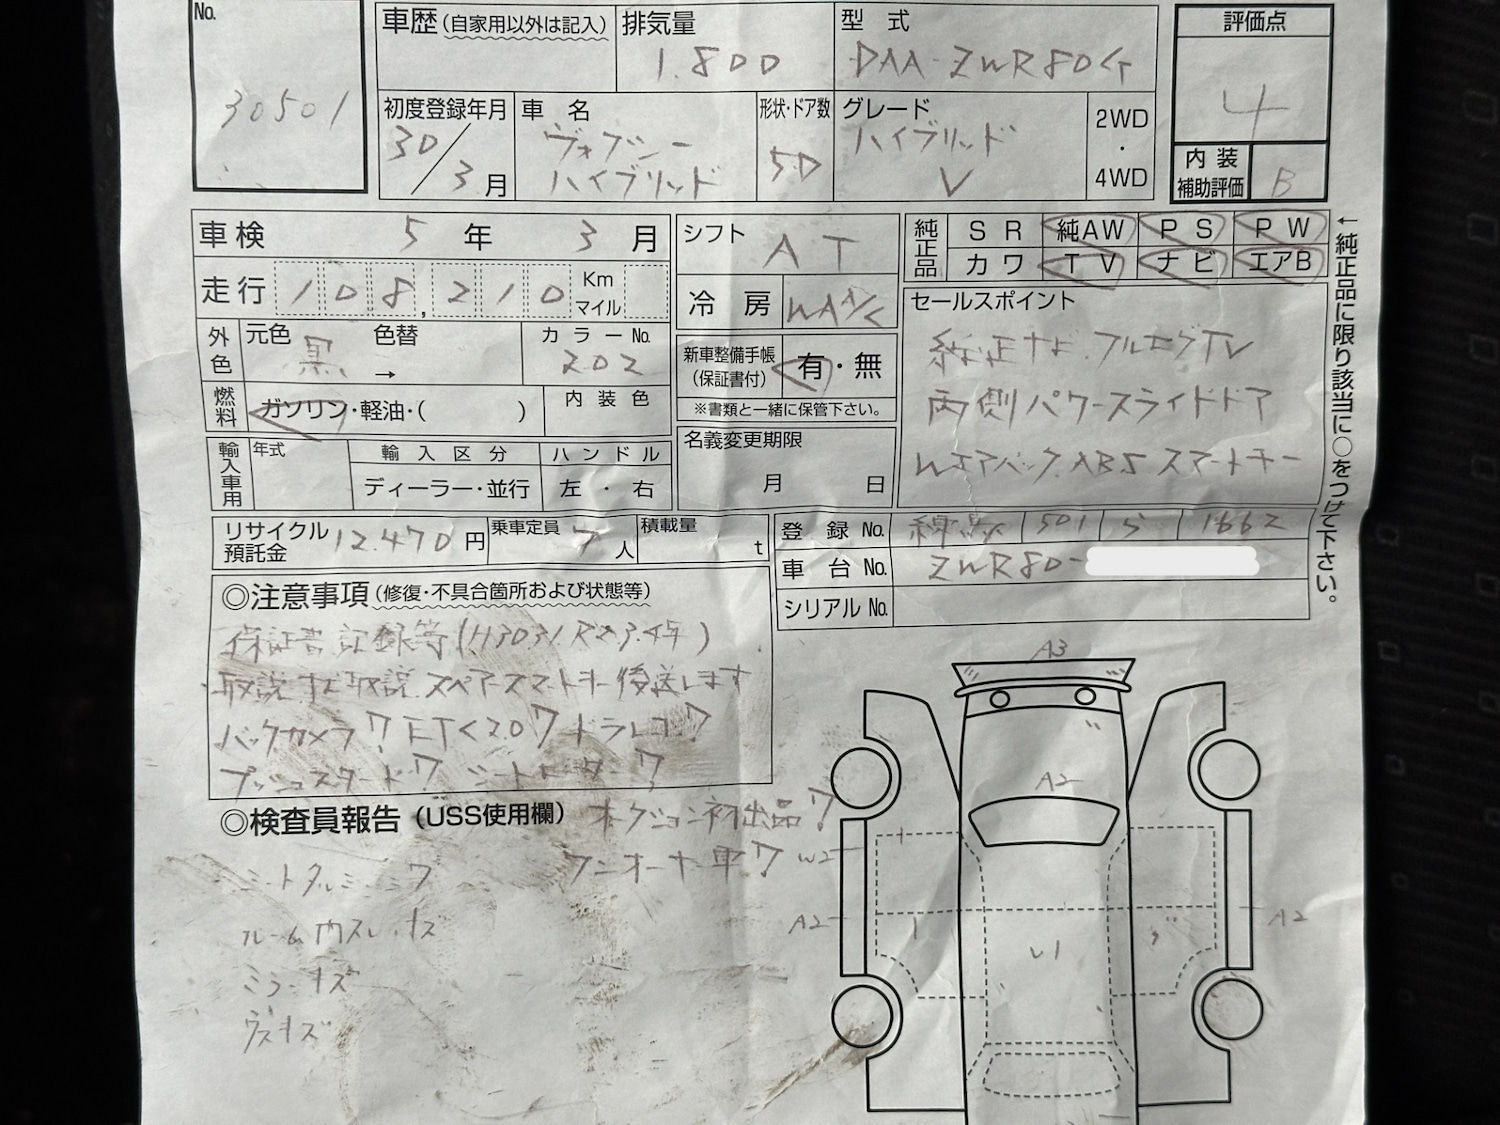 No.
30501
車歴(自家用以外は記入)
排気量
1.800
型 式
DAA-ZWR80G
評価点
4
内装補助評価
B
初度登録年月
30/3月
車 名
ヴォクシー
ハイブリッド
形状・ドア数
5D
グレード
ハイブリッド
V
2WD
・
4WD
車検 5年 3月
シフト AT
純正品
SR 純AW PS PW
カワ TV ナビ エアB
←純正品に限り該当に○をつけて下さい。
走行 108,210 Km マイル
冷房 WAA/C
外色
元色 黒
色替 →
カラーNo. 202
新車整備手帳(保証書付)
有・無
※書類と一緒に保管下さい。
燃料 ガソリン・軽油・( )
内装色
セールスポイント
純正ナビ.フルセグTV
両側パワースライドドア
WエアバックABSスマートキー
輸入車用
年式
輸入区分
ディーラー・並行
ハンドル
左・右
名義変更期限
月 日
リサイクル預託金 12.470円
乗車定員 7人
積載量 t
登録No. 練馬 501 5 1662
車台No. ZWR80-
シリアルNo.
◎注意事項(修復・不具合箇所および状態等)
保証書 記録等
取説 ナビ取説 スペアースマートキー後送します
バックカメラ!! ETC2.0!! ドラレコ!!
プッシュスタート!! シートヒーター!!
◎検査員報告(USS使用欄)
オークション初出品!!
ワンオーナー車!!
ルーム内スレ・キズ
ミラーキズ
A3
A2
W2
A2
A2
U1